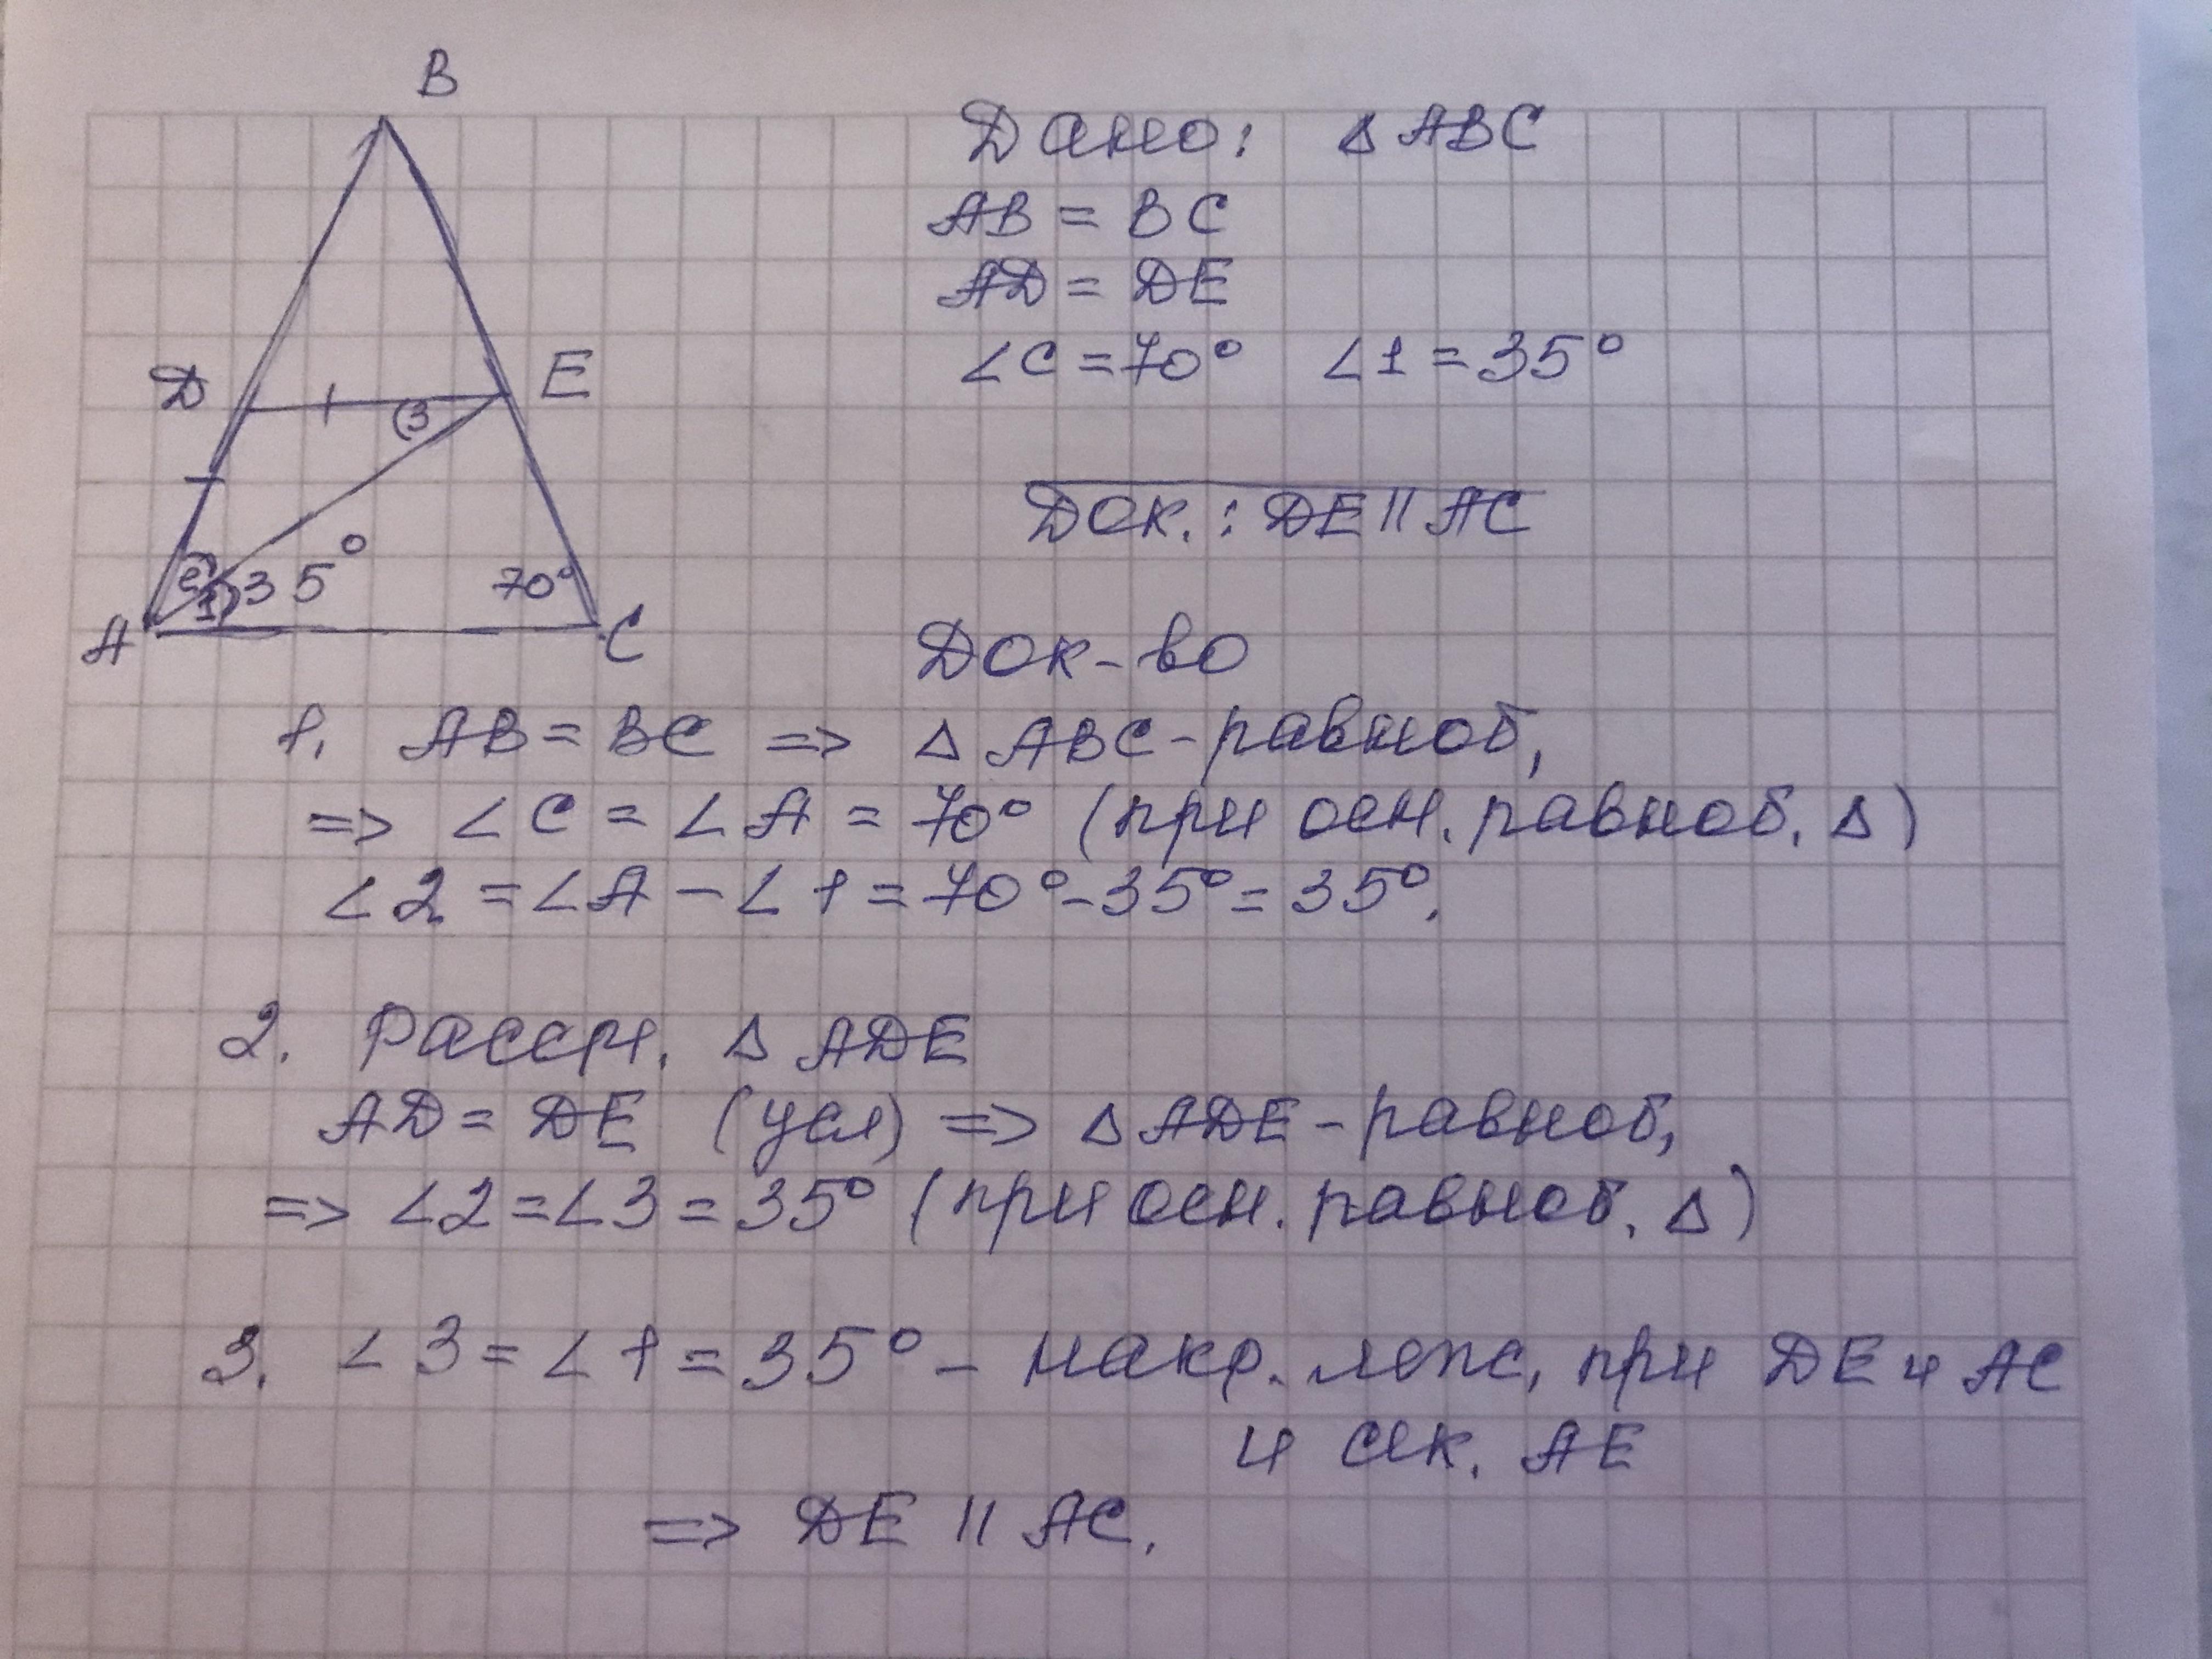 B
Дано: △ ABC
AB = BC
AD = DE
∠C = 70° ∠1 = 35°
D E
3
Док.: DE || AC
2
1 35° 70°
A C
Док-во
1. AB = BC => △ ABC - равноб,
=> ∠C = ∠A = 70° (при осн. равноб. △)
∠2 = ∠A - ∠1 = 70° - 35° = 35°.
2. Рассм. △ ADE
AD = DE (усл) => △ ADE - равноб,
=> ∠2 = ∠3 = 35° (при осн. равноб. △)
3. ∠3 = ∠1 = 35° - накр. леж, при DE и AC
и сек. AE
=> DE || AC.